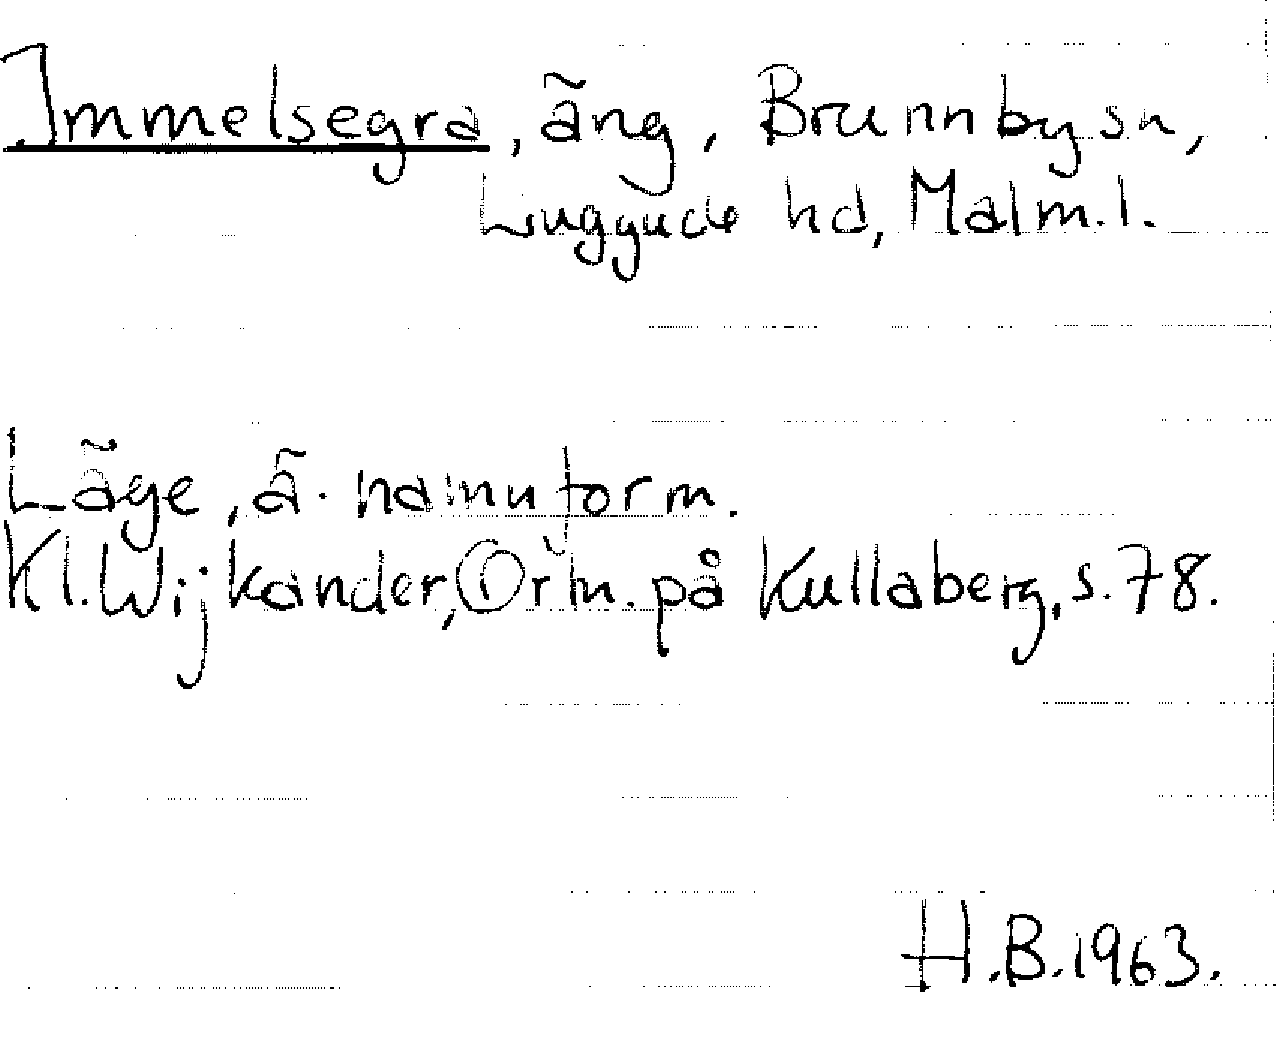 Immelsegra, äng, Brunnby sn,
Luggude hd, Malm.l.
Läge, ä. namnform.
Kl. Wijkander, Ortn. på Kullaberg, s. 78.
H.B. 1963.